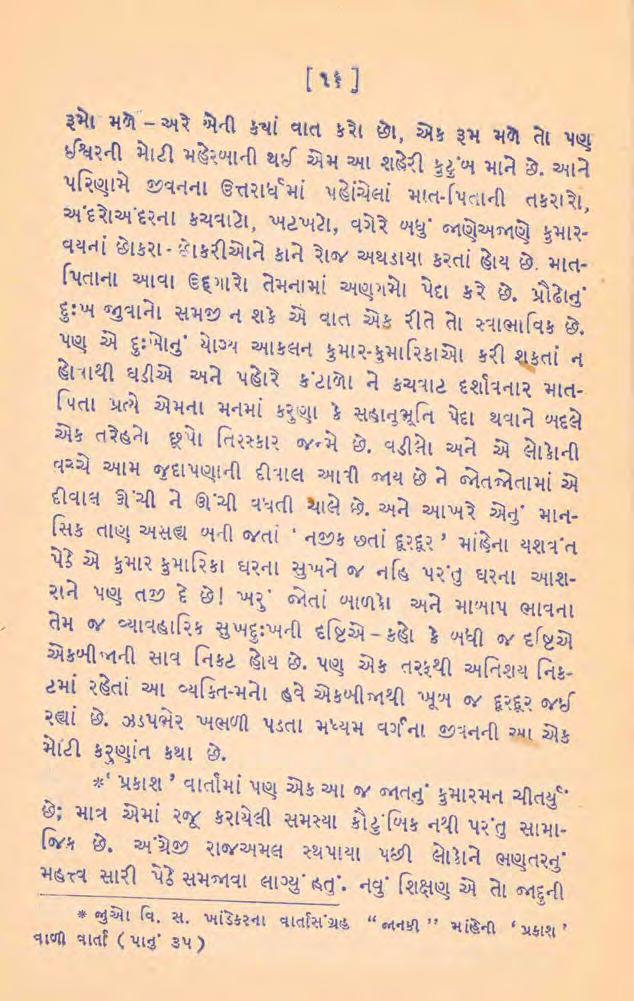 [ ૧૬ ]
રૂમો મળે – અરે એની ક્યાં વાત કરો છો, એક રૂમ મળે તો પણ
ઈશ્વરની મોટી મહેરબાની થઈ એમ આ શહેરી કુટુંબ માને છે. આને
પરિણામે જીવનના ઉત્તરાર્ધમાં પહોંચેલાં માત-પિતાની તકરારો,
અંદરોઅંદરના કચવાટો, ખટપટો, વગેરે બધું જાણેઅજાણે કુમાર-
વયનાં છોકરા-છોકરીઓને કાને રોજ અથડાયા કરતાં હોય છે. માત-
પિતાના આવા ઉદ્દગારો તેમનામાં અણગમો પેદા કરે છે. પ્રૌઢોનું
દુઃખ જુવાનો સમજી ન શકે એ વાત એક રીતે તો સ્વાભાવિક છે.
પણ એ દુઃખોનું યોગ્ય આકલન કુમાર-કુમારિકાઓ કરી શકતાં ન
હોવાથી ઘડીએ અને પહોરે કંટાળો ને કચવાટ દર્શાવનાર માત-
પિતા પ્રત્યે એમના મનમાં કરુણા કે સહાનુભૂતિ પેદા થવાને બદલે
એક તરેહનો છૂપો તિરસ્કાર જન્મે છે. વડીલો અને એ લોકોની
વચ્ચે આમ જુદાપણાની દીવાલ આવી જાય છે ને જોતજોતામાં એ
દીવાલ ઊંચી ને ઊંચી વધતી ચાલે છે. અને આખરે એનું માન-
સિક તાણ અસહ્ય બની જતાં ‘ નજીક છતાં દૂરદૂર ’ માંહેના યશવંત
પેઠે એ કુમાર કુમારિકા ઘરના સુખને જ નહિ પરંતુ ઘરના આશ-
રાને પણ તજી દે છે! ખરું જોતાં બાળકો અને માબાપ ભાવના
તેમ જ વ્યાવહારિક સુખદુઃખની દૃષ્ટિએ – કહો કે બધી જ દૃષ્ટિએ
એકબીજાની સાવ નિકટ હોય છે. પણ એક તરફથી અતિશય નિક-
ટમાં રહેતાં આ વ્યક્તિ-મનો હવે એકબીજાથી ખૂબ જ દૂરદૂર જઈ
રહ્યાં છે. ઝડપભેર ખળભળી પડતા મધ્યમ વર્ગના જીવનની આ એક
મોટી કરુણાંત કથા છે.
*‘ પ્રકાશ ’ વાર્તામાં પણ એક આ જ જાતનું કુમારમન ચીતર્યું
છે; માત્ર એમાં રજૂ કરાયેલી સમસ્યા કૌટુંબિક નથી પરંતુ સામા-
જિક છે. અંગ્રેજી રાજઅમલ સ્થપાયા પછી લોકોને ભણતરનું
મહત્ત્વ સારી પેઠે સમજાવા લાગ્યું હતું. નવું શિક્ષણ એ તો જાદુની
* જુઓ વિ. સ. ખાંડેકરના વાર્તાસંગ્રહ “ જાનકી ” માંહેની ‘ પ્રકાશ ’
વાળી વાર્તા ( પાનું ૩૫ )